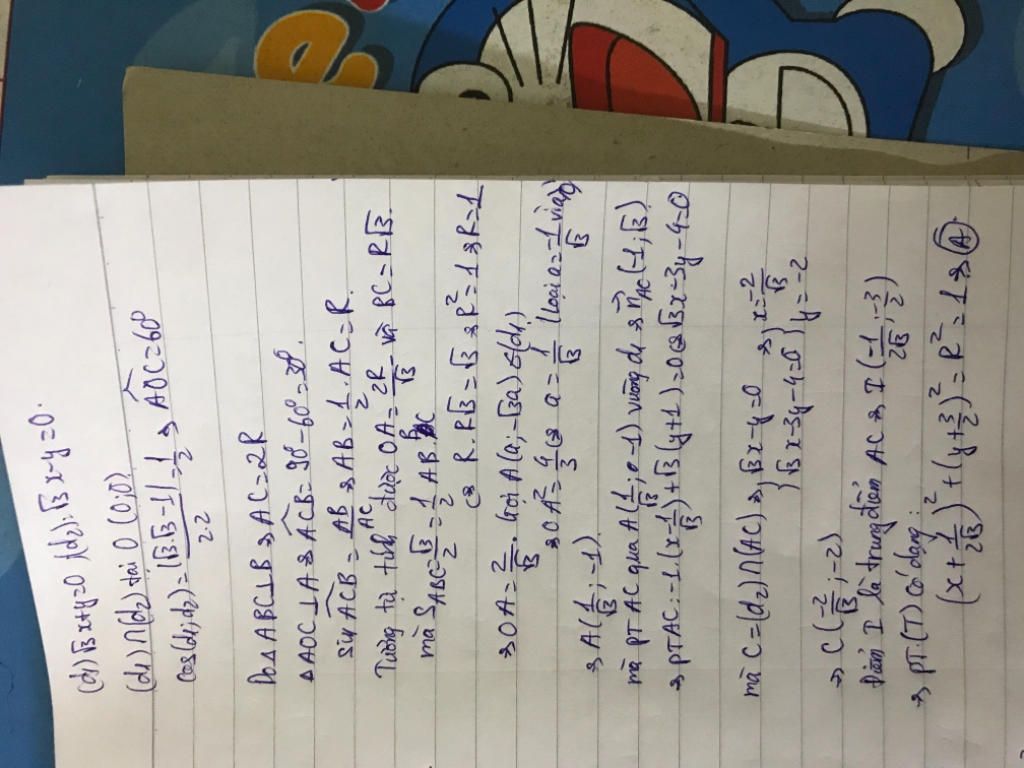 (d1) √3x+y=0, (d2): √3x-y=0.
(d1)∩(d2) tại O (0;0)
cos(d1;d2) = |√3.√3-1|/2.2 = 1/2 → AOC=60°
Do △ABC⊥B → AC=2R
△AOC⊥A → ACB=90°-60°=30°.
sin ACB = AB/AC → AB=1/2.AC=R.
Tương tự tính được OA=2R/√3 và BC=R√3.
mà S ABC=√3/2=1/2 AB.BC
⇔ R.R√3=√3 → R²=1 → R=1
→ OA=2/√3. Gọi A(a;-√3a)∈(d1)
→ OA²=4/3 ⇔ a=1/√3 (loại a=-1/√3 vì a>0)
→ A(1/√3;-1)
mà PT AC qua A(1/√3;-1) vuông d1 → n AC(-1;√3)
→ PT AC: -1.(x-1/√3)+√3(y+1)=0 ⇔ √3x-3y-4=0
mà C=(d2)∩(AC) → { √3x-y=0 √3x-3y-4=0 → { x=-2/√3 y=-2
→ C(-2/√3;-2)
Điểm I là trung điểm AC → I(-1/2√3;-3/2)
→ PT (T) có dạng:
(x+1/2√3)²+(y+3/2)²=R²=1 → A.